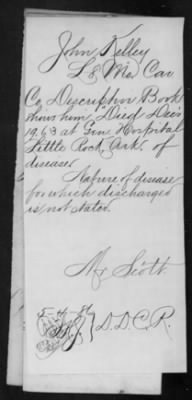 John Kelley
L 8 Mo Cav
Co. Descriptn Book
shows him "Died Dec
1963 at Gen Hospital
Little Rock Ark. of
disease"
Nature of disease
for which discharged
is not stated.
Mr Scott
D. D. C. R.